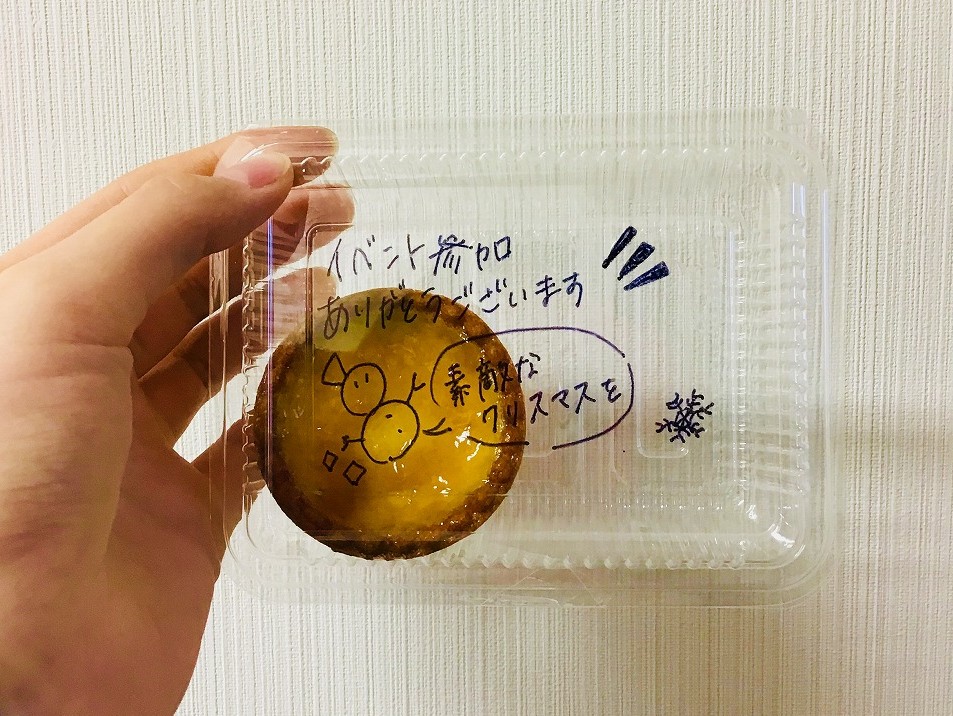 イベント参加
ありがとうございます
素敵な
クリスマスを